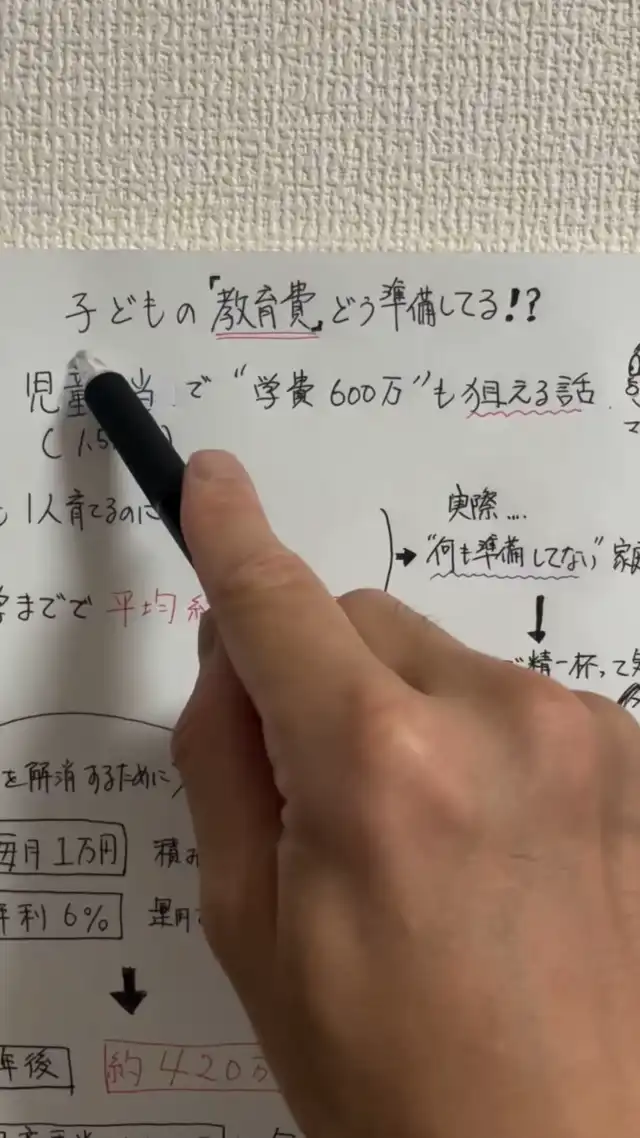 子どもの「教育費」どう準備してる!?
児童 当 で "学費 600万" も狙える話
(1.5
1人育てるのに
までで 平均
実際....
"何も準備してない"
精一杯って
を解消するために
毎月1万円
年利6%
運用
年後 約420万